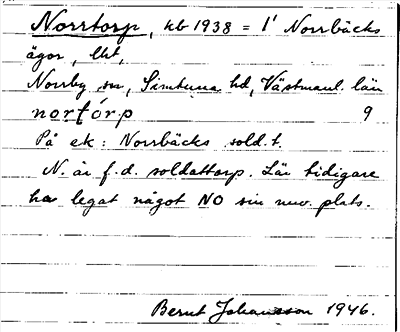 Norrtorp, kb 1938 = 1' Norrbäcks
ägor, lht,
Norrby sn, Simtuna hd, Västmanl. län
nortórp 9
På ek: Norrbäcks sold.t.
N. är f.d. soldattorp. Lär tidigare
ha legat något NO sin nuv. plats.
Bernt Johansson 1946.